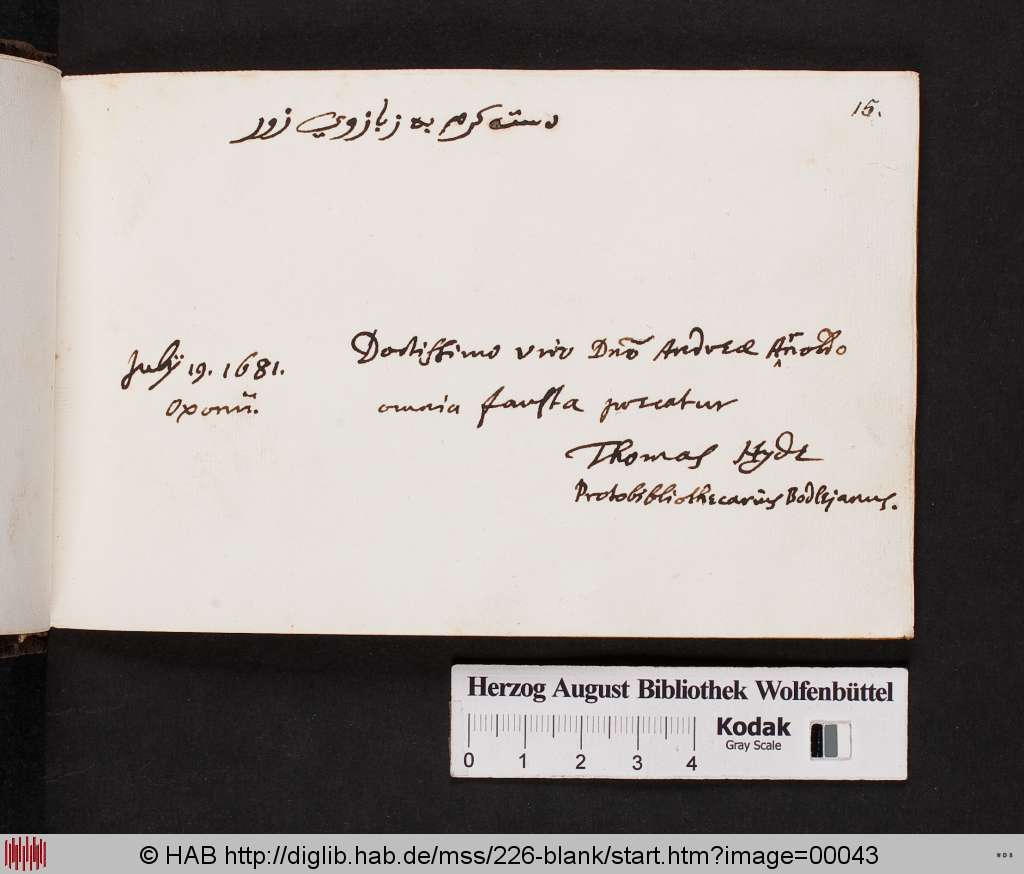 15.
دست كرم به زبازوي زور
July 19. 1681.
Oxonii.
Doctissimo viro Dno Andreæ Arnoldo
omnia fausta precatur
Thomas Hyde
Protobibliothecarius Bodlejanus.
Herzog August Bibliothek Wolfenbüttel
Kodak
Gray Scale
0 1 2 3 4
© HAB http://diglib.hab.de/mss/226-blank/start.htm?image=00043